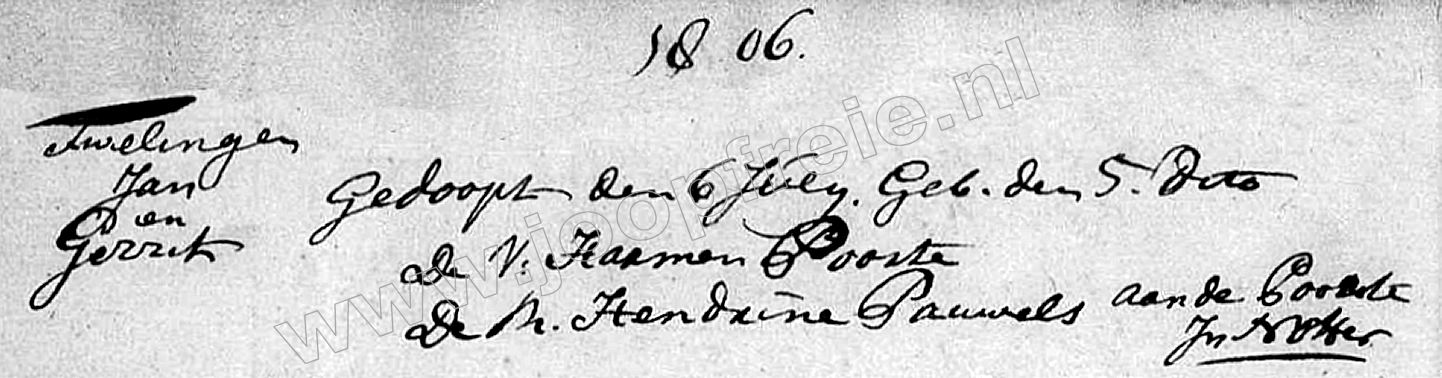 1806.
Twelingen
Jan
en
Gerrit
Gedoopt den 6 July. Geb. den 5. Dito
De V. Harmen Poorte
De M. Hendrine Pauwels aan de Poorte
In Notter
www.joopfreie.nl